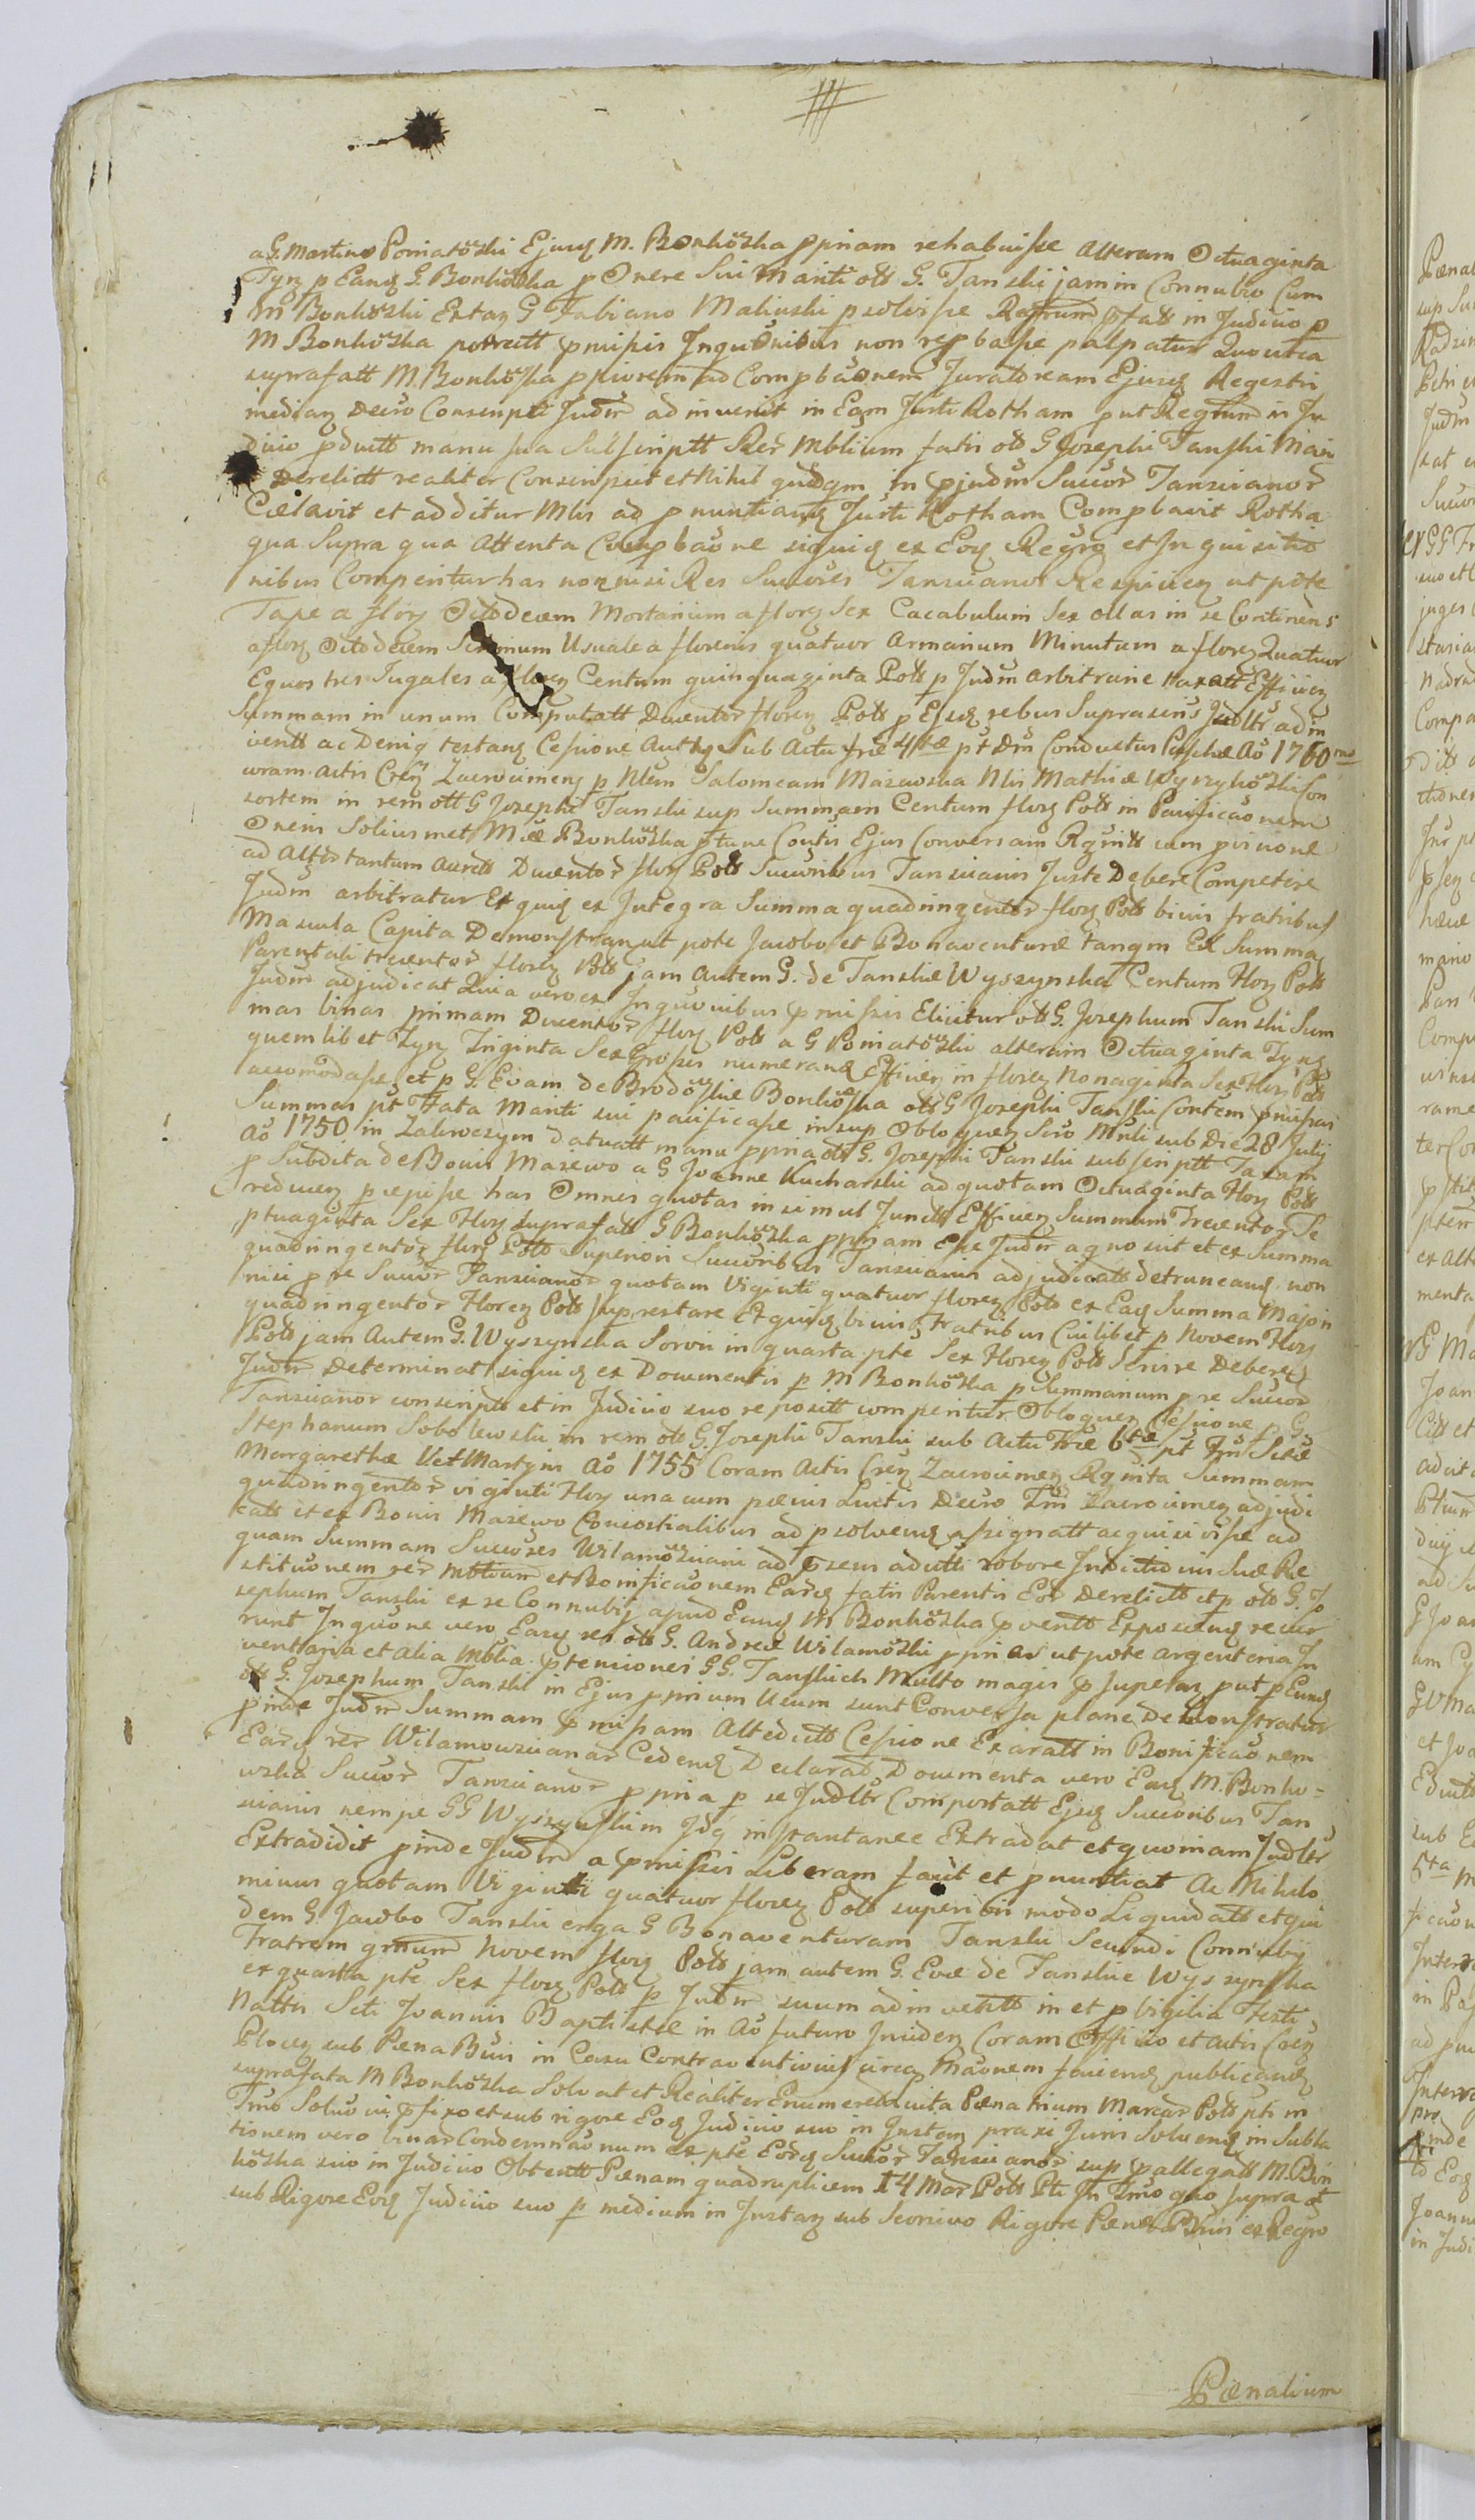 a G. Martino Poniatöski Ejusq M. Bonköska ppriam rehabuisse alteram Octuaginta
Tynf p Eanq G. Bonkoska p Onere Sui Mariti olt G. Tanski jam in Connubio Cum
M Bonkoski Extaq G Fabiano Maliuski p solvisse Regrum pfatt in Judicio p
M Bonkoska porrectt pmissis Inquönibus non rep basse palpatur Quocirca
suprafatt M. Bonköska ppriorem ad Compbäönem Juratoream Ejusq Regestri
median Decio Conscripti Judm adinvenit in Eam Justi Rotham put Regrum in Ju
dicio pductt manu sua Subscriptt Rer Mblium fatis olt G Josephi Tanski Mari
Derelictt realiter Conscripsit et Nihil quidqm in pjudm Succor Tanscianor
Cælavit et additur Mlis ad pnuntianq Justi Rotham Compbavit Rotha
qua Supra qua Attenta Compbäone siquiq ex Eoq Regro et Inquisitio
nibus Comperitur has non nisi Res Succores Tanscianos Respicieq utpote
Tape a flory Octodecem Mortarium a floreq Sex Cacabulum Sex ollas in se Continens
a floq Octodecem Usuale a florenis quatuor Armarium Minutum a floreq Quatuor
Equos tres Jugales a floreq Centum quinquaginta Polt p Judm arbitrarie taxatt Efficieq
Summam in unum Computatt Ducentor floreq Polt p Ejsq rebus Suprascris Judltr adin
ventt ac Deniq testanq Cessione Autty Sub Actu friæ 4tæ pt Dm Conductus Paschæ Aö 1760mo
coram Actis Creq Zacrocimeq p Nlem Salomeam Mazewska Nlis Mathiæ Wyrzykoski Con
sortem in rem oltt G Josephi Tanski sup Summam Centum floq Polt in Pacificaönem
Oneris Solius met Micæ Bonkoska ptunc Coutis Ejus Conversam Rgnitt cum pisione
ad Altertantum Auctt Ducentor floq Polt Succoribus Tanscianis Juste Debere Competere
Judm arbitratur Et quiq ex Integra Summa quadringentor floq Polt binis fratribus
Mascula Capita Demonstranq ut pote Jacobo et Bonaventuræ tanqm Ex Summa
Parentali trecentor floreq Polt jam autem G. de Tanskie Wyszynska Centum Floq Polt
Judm adjudicat Quia vero ex Inquönibus pmissis Elicitur olt G. Josephum Tanski Sum
mas binas primam Ducentor floq Polt a G Poniatöski alteram Octuaginta Tynf
quemlibet Tynf Triginta Sex Grossis numerand Efficieq in floreq Nonaginta Sex Floq Polt
accomodasse et p G. Evam de Brodoskie Bonköska olt G Josephi Tanski Contem pmissas
Summas pt Fata Mariti sui pacificasse insup Obloquen Scro Mnli sub Die 28 Julij
Aö 1750 in Zakroczym datuatt manu ppria olt G. Josephi Tanski subscriptt Taxam
p Subdita de Bonis Mazewo a G Joanne Kucharski ad quotam Octuaginta Floq Polt
reducen p cepisse has Omnes quotas in simul Junctt Efficieq Summum Trecentor Se
ptuaginta Sex Floq suprafatt G Bonköska ppriam Esse Judm agnoscit et ex Summa
quadringentor floq Polt Superiori Succoribus Tanscianis adjudicatt detruncanq non
nisi p re Succor Tanscianor quotam Viginti quatuor floreq Polt ex Eaq Summa Majori
quadringentor Floreq Polt suprestare Et quiq binis fratribus Cuilibet p Novem Floq
Polt jam Autem G. Wyszynska Sorori in quarta pte Sex Floreq Polt Servire Debere
Judm Determinat siquiq ex Documentis p M Bonköska p Summarium p re Succor
Tanscianor conscriptt et in Judicio suo repositt comperitur Obloquen Cessione p G.
Stephanum Sobolewski in rem olt G. Josephi Tanski sub Actu Friæ 6tæ pt Fm Sctæ
Margarethæ Vet Martyris Aö 1755 Coram Actis Creq Zacrocimeq Rgnita Summam
quadringentor viginti Floq una cum pænis Luitis Decro Tm Zacrocimeq adjudi
catt et ex Bonis Mazewo Consortialibus ad psolvenq assignatt acquisivisse ad
quam Summam Succores Wilamöwsciani ad psens aducti robore Indictionis Suæ Re
stitionem rer mblium et Bonificäonem Earq fatis Parentis Eor Derelictt et p olt G. Jo
sephum Tanski ex se Connubij apud Eanq M Bonköska pventt Exposcenq recur
runt Inquöne vero Earq rer olt G. Andreæ Wilamöski pprias utpote argenteria In
ventaria et alia Mblia ptensiones GG. Tanskich Multo magis p superan put p Eunq
olt G. Josephum Tanski in Ejus pprium Usum sunt Conversa plane Demonstratur
pinde Judm Summam pmissam Altedictt Cessione Exaratt in Bonificäonem
Earq rer Wilamowscianar Cedenq Declarat Documenta vero Eaq M. Bonko=
wska Succor Tanscianor ppria p se Judltr Comportatt Ejsq Succoribus Tan
scianis nempe GG Wyszynskim Jdq instantanee Extradat et quoniam Judltr
Extradidit pinde Judm a pmissis Liberam facit et pnuntiat Ac Nihilo
minus quotam Viginti quatuor floreq Polt superiori modo Liquidatt et qui
dem G. Jacobo Tanski erga G Bonaventuram Tanski Secundi Connubij
Fratrem grnum Novem floq Polt jam autem G. Evæ de Tanskie Wyszynska
ex quarta pte Sex floq Polt p Judm suum adinventt in et p Vigilia Festi
Nattis Scti Joannis Baptistæ in Aö futuro Incideq Coram Officio et Actis Creq
Ploceq sub Pæna Bnis in Casu Contraventionis circa Mäonem faciend publicanq
suprafata M Bonköska Solvat et Realiter Enumeret Luita Pæna trium Marcar Polt pti in
Tmo Soluöis pfixo et sub rigore Eoq Judicio suo in Instan praxi Juris Solvenq in Subla
tionem vero binar Condemnäonum ex pte Eorq Succor Tanscianor sup pallegatt M. Bon
köska suo in Judicio Obtentt Pænam quadruplicem 14 Mar Polt Pti In Tmo quo supra et
sub Rigore Eoq Judicio suo p medium in Instan sub Seorsivo Rigore Pænæ Bnis ex Regro
Pænalium